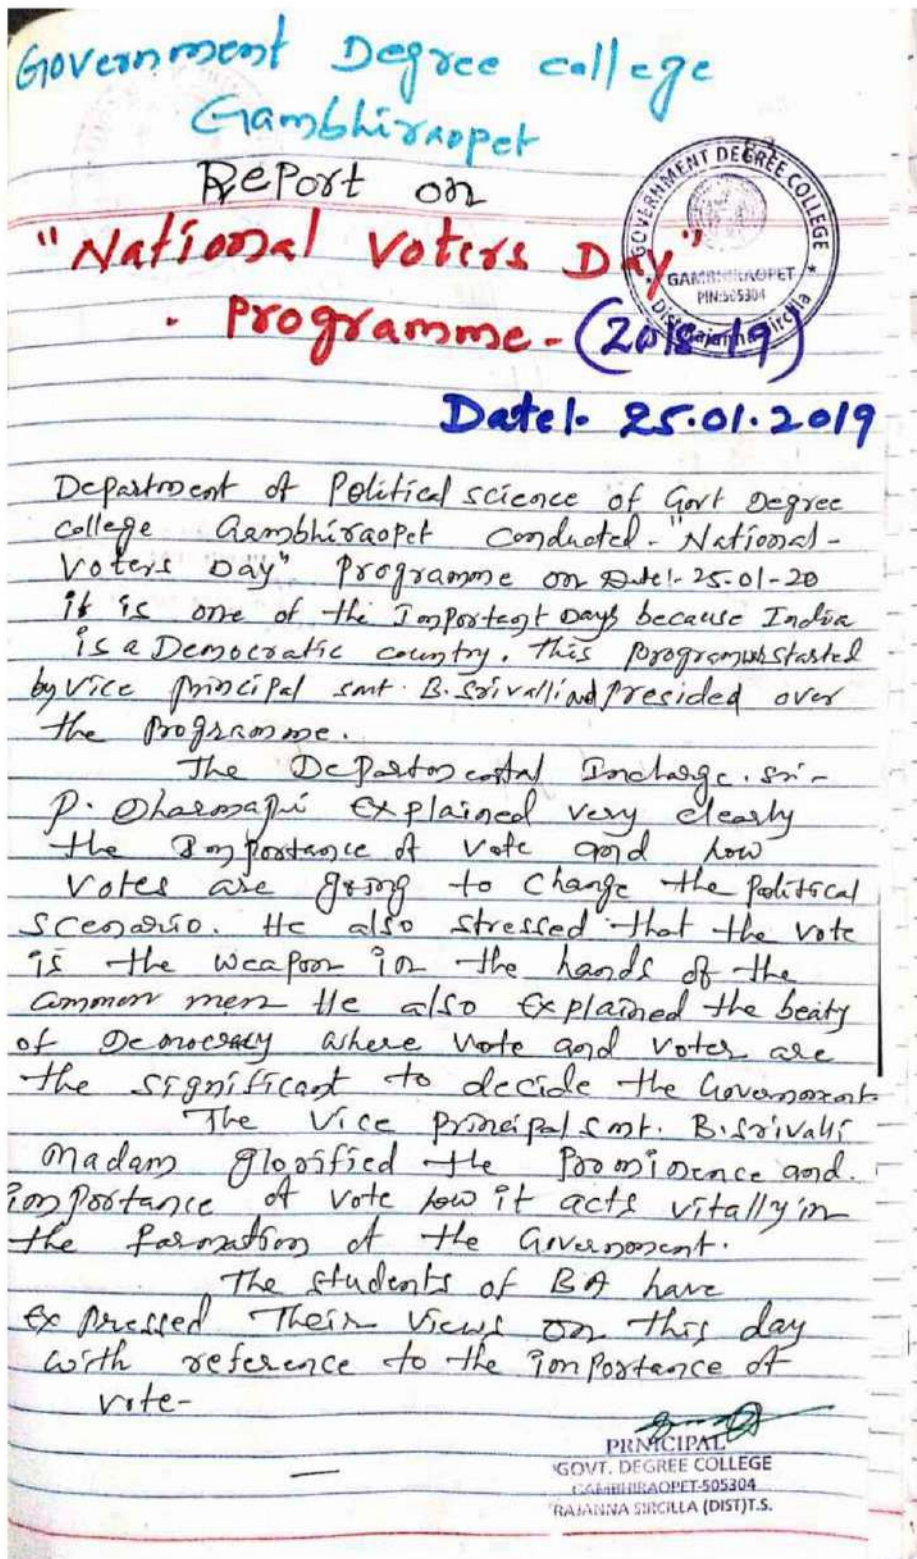 Government Degree college
Gambhiraopet
Report on
"National Voters Day"
Programme - (2018-19)
GOVERNMENT DEGREE COLLEGE
GAMBHIRAOPET
PIN:505304
Dist:Rajanna Sircilla
Date:- 25.01.2019
Department of Political science of Govt Degree
college Gambhiraopet conducted - "National -
Voters Day" Programme on Date:- 25-01-20
it is one of the Importent Days because India
is a Democratic country. This program started
by Vice principal smt. B. Srivalli and presided over
the programme.
The Departmental Incharge. sri -
P. explained very clearly
the Importance of vote and how
votes are going to change the political
scenario. He also stressed that the vote
is the weapon in the hands of the
common men He also explained the beaty
of Democracy where vote and voter are
the significant to decide the Government.
The Vice principal smt. B. Srivalli
Madam glorified the prominence and
importance of vote how it acts vitally in
the formation of the Government.
The students of BA have
expressed Their views on this day
with reference to the importance of
vote -
PRNICIPAL
GOVT. DEGREE COLLEGE
GAMBHIRAOPET-505304
RAJANNA SIRCILLA (DIST)T.S.